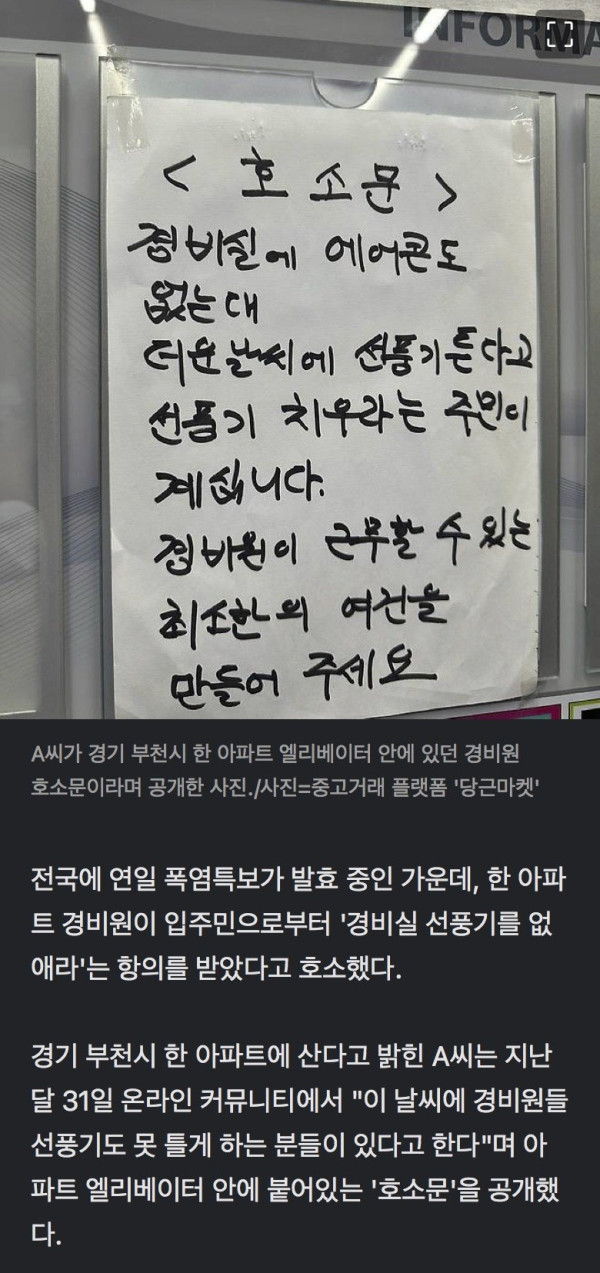 INFORMA
< 호소문 >
경비실에 에어콘도
없는대
더운날씨에 선풍기튼다고
선풍기 치우라는 주민이
계십니다.
경비원이 근무할 수 있는
최소한의 여건을
만들어 주세요
A씨가 경기 부천시 한 아파트 엘리베이터 안에 있던 경비원
호소문이라며 공개한 사진./사진=중고거래 플랫폼 '당근마켓'
전국에 연일 폭염특보가 발효 중인 가운데, 한 아파
트 경비원이 입주민으로부터 '경비실 선풍기를 없
애라'는 항의를 받았다고 호소했다.
경기 부천시 한 아파트에 산다고 밝힌 A씨는 지난
달 31일 온라인 커뮤니티에서 "이 날씨에 경비원들
선풍기도 못 틀게 하는 분들이 있다고 한다"며 아
파트 엘리베이터 안에 붙어있는 '호소문'을 공개했
다.